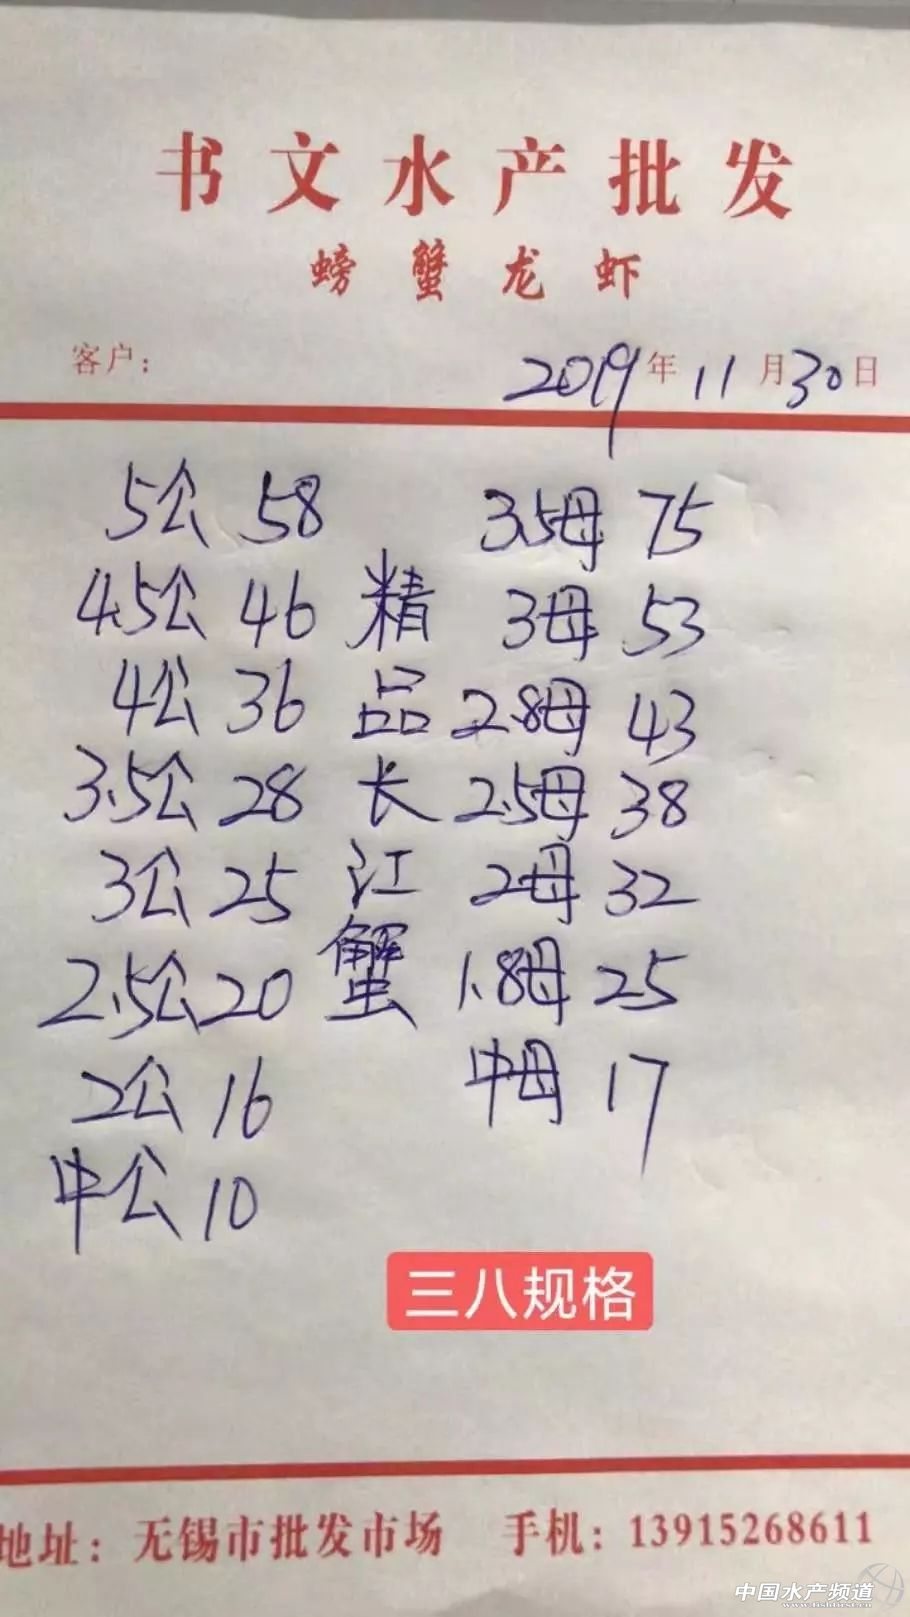 书文水产批发
螃蟹龙虾
客户: 2019年11月30日
5公 58 3.5母 75
4.5公 46 精 3母 53
4公 36 品 2.8母 43
3.5公 28 长 2.5母 38
3公 25 江 2母 32
2.5公 20 蟹 1.8母 25
2公 16 中母 17
中公 10
三八规格
地址: 无锡市批发市场 手机: 13915268611
中国水产频道